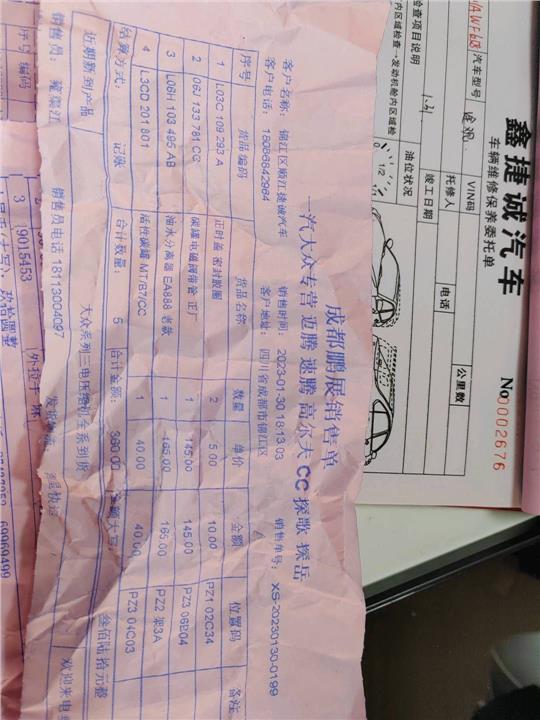 成都鹏展销售单
一汽大众专营 迈腾 速腾 高尔夫 CC 探歌 探岳
客户名称: 锦江区顺江捷诚汽车 销售时间: 2023-01-30 18:13:03 销售单号: XS-20230130-0199
客户电话: 18086842964 客户地址: 四川省成都市锦江区
序号 货品编码 货品名称 数量 单价 金额 位置码 备注
1 L03C 109 293 A 正时盖 密封胶圈 2 5.00 10.00 PZ1 02C34
2 06J 133 781 CC 碳罐电磁阀带管 正厂 1 145.00 145.00 PZ3 06B04
3 L06H 103 495 AB 油水分离器 EA888 老款 1 165.00 165.00 PZ2 架3A
4 L3CD 201 801 活性碳罐 MT/B7/CC 1 40.00 40.00 PZ3 04C03
结算方式: 记账 合计数量: 5 合计金额: 360.00 金额大写: 叁佰陆拾元整
近期新到产品 大众系列三电压缩机全系到货 欢迎来电
销售员: 销售员电话 18113004097 发货物流:
序号 编码
3 9015453
外拉手
69969499
鑫捷诚汽车
车辆维修保养委托单
No 0002676
汽车型号 途观 VIN码 公里数
托修人 电话
竣工日期
检查项目说明 1.31
油位状况
1/2